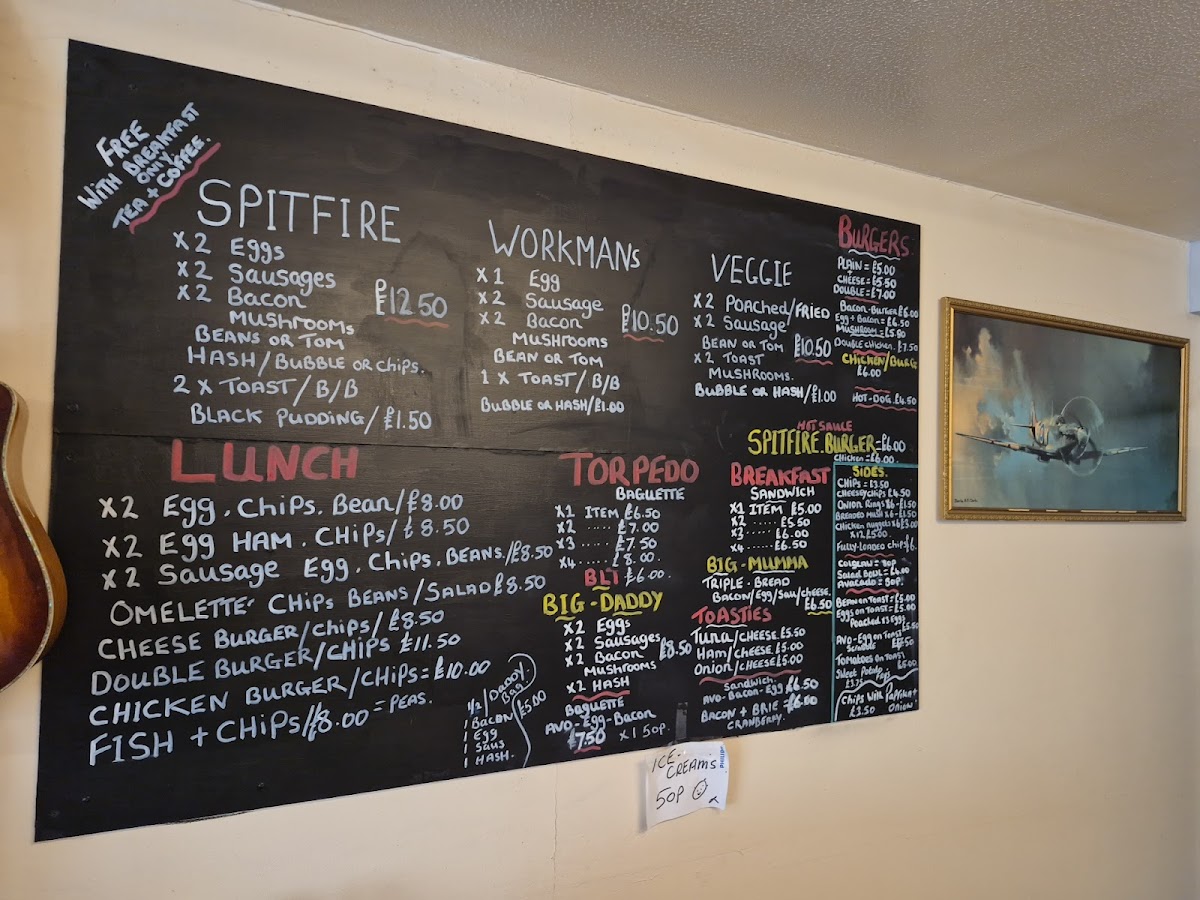 FREE
WITH BREAKFAST
ONLY
TEA + COFFEE.
SPITFIRE
x2 Eggs
x2 Sausages
x2 Bacon
MUSHROOMS
£12.50
BEANS OR TOM
HASH/BUBBLE OR CHIPS.
2 x TOAST/B/B
BLACK PUDDING/£1.50
WORKMANs
x1 Egg
x2 Sausage
x2 Bacon
£10.50
MUSHROOMS
BEAN OR TOM
1 x TOAST/B/B
BUBBLE OR HASH/£1.00
VEGGIE
x2 POACHED/FRIED
x2 SAUSAGE
BEAN OR TOM £10.50
x2 TOAST
MUSHROOMS.
BUBBLE OR HASH/£1.00
BURGERS
PLAIN = £5.00
CHEESE = £5.50
DOUBLE = £7.00
BACON-BURGER £6.00
Egg + BACON = £6.50
MUSHROOM = £5.80
DOUBLE CHICKEN. £7.50
CHICKEN/BURG
£6.00
HOT-DOG £4.50
HOT SAUCE
SPITFIRE.BURGER = £6.00
CHICKEN = £6.00
LUNCH
x2 Egg.CHIPS.Bean/£8.00
x2 Egg HAM.CHIPS/£8.50
x2 SAUSAGE Egg.CHIPS.BEANS./£8.50
OMELETTE CHIPS BEANS/SALAD £8.50
CHEESE BURGER/CHIPS/£8.50
DOUBLE BURGER/CHIPS £11.50
CHICKEN BURGER/CHIPS = £10.00
FISH + CHIPS/£8.00 = PEAS.
1/2/DADDY
BAG/
£5.00
1 BACON
1 Egg
1 SAUS
1 HASH.
TORPEDO
BAGUETTE
x1 ITEM £6.50
x2 ..... £7.00
x3 ..... £7.50
x4 ..... £8.00.
BLT £6.00.
BIG-DADDY
x2 Eggs
x2 SAUSAGES
x2 Bacon £8.50
MUSHROOMS
x2 HASH
BAGUETTE
AVO-Egg-BACON
£7.50 x1 50p.
BREAKFAST
SANDWICH
x1 ITEM £5.00
x2 ..... £5.50
x3 ..... £6.00
x4 ..... £6.50
BIG-MUMMA
TRIPLE-BREAD
BACON/Egg/SAU/CHEESE.
£6.50
TOASTIES
TUNA/CHEESE £5.50
HAM/CHEESE £5.00
ONION/CHEESE £5.00
SANDWICH.
AVO-BACON-Egg £6.50
BACON + BRIE = £6.00
CRANBERRY.
SIDES.
CHIPS = £3.50
CHEESY CHIPS £4.50
ONION RINGS x6-£1.50
BREADED MUSH x6-£1.50
CHICKEN NUGGETS x6 £3.00
x12 £5.00.
FULLY-LOADED CHIPS £6.
COLSLAW = 50P
SALAD BOWL = £4.00
AVOCADO = 50P.
BEAN ON TOAST = £5.00
EGGS ON TOAST = £5.00
AVO-EGG ON TOAST
TOMATOES ON TOAST
£5.00
SWEET POTATO
£3.75
CHIPS WITH PAPRIKA +
£3.50 ONION
ICE-
CREAMS
50P
PHILIPS